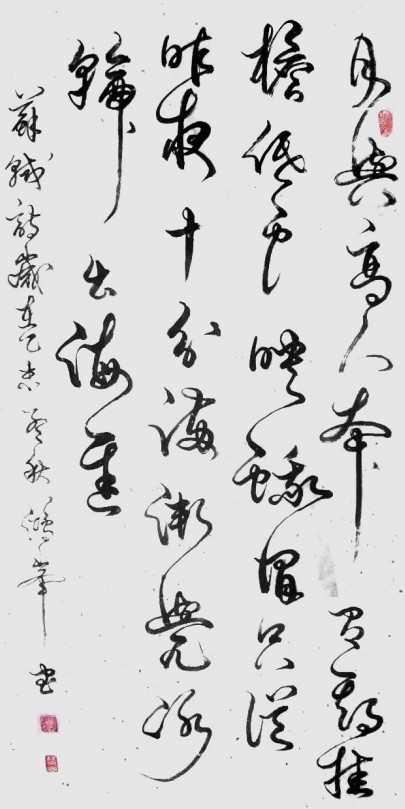 月與高人本有期挂
檐低户映蛾眉只從
昨夜十分滿漸覺冰
輪出海遲
蘇軾詩歲在乙未孟秋鴻峯書